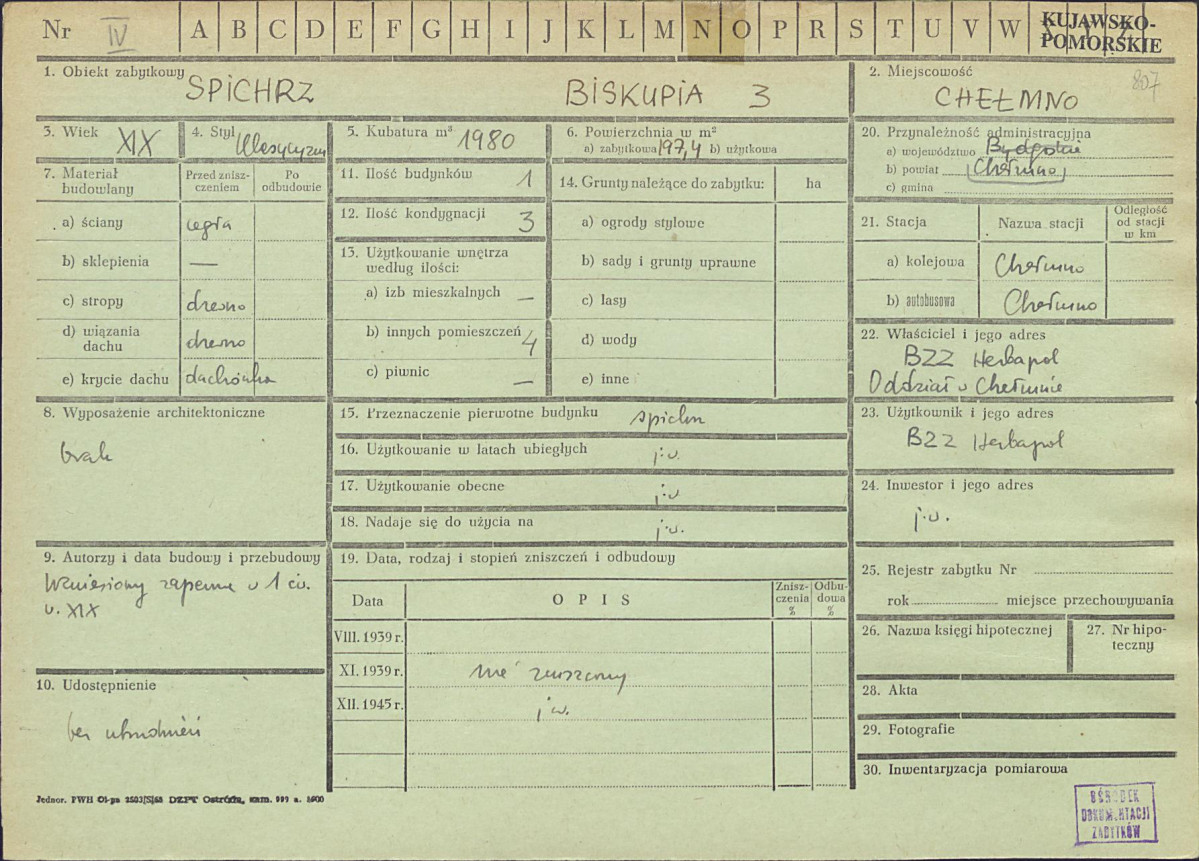 Nr IV A B C D E F G H I J K L M N O P R S T U V W KUJAWSKO-
POMORSKIE
1. Obiekt zabytkowy SPICHRZ BISKUPIA 3
2. Miejscowość 807
CHEŁMNO
3. Wiek XIX
4. Styl Klasycyzm
5. Kubatura m³ 1980
6. Powierzchnia w m²
a) zabytkowa 197,4 b) użytkowa
7. Materiał
budowlany
Przed znisz-
czeniem
Po
odbudowie
a) ściany cegła
b) sklepienia —
c) stropy drewno
d) wiązania
dachu drewno
e) krycie dachu dachówka
8. Wyposażenie architektoniczne
brak
9. Autorzy i data budowy i przebudowy
Wzniesiony zapewne w 1 ćw.
w. XIX
10. Udostępnienie
bez utrudnień
11. Ilość budynków 1
12. Ilość kondygnacji 3
13. Użytkowanie wnętrza
według ilości:
a) izb mieszkalnych —
b) innych pomieszczeń 4
c) piwnic —
14. Grunty należące do zabytku: ha
a) ogrody stylowe
b) sady i grunty uprawne
c) lasy
d) wody
e) inne
15. Przeznaczenie pierwotne budynku spichrz
16. Użytkowanie w latach ubiegłych j.w.
17. Użytkowanie obecne j.w.
18. Nadaje się do użycia na j.w.
19. Data, rodzaj i stopień zniszczeń i odbudowy
Data OPIS
Znisz-
czenia
%
Odbu-
dowa
%
VIII. 1939 r.
XI. 1939 r. nie zniszczony
XII. 1945 r. j.w.
20. Przynależność administracyjna
a) województwo Bydgoskie
b) powiat Chełmno
c) gmina
21. Stacja Nazwa stacji
Odległość
od stacji
w km
a) kolejowa Chełmno
b) autobusowa Chełmno
22. Właściciel i jego adres
BZZ Herbapol
Oddział w Chełmnie
23. Użytkownik i jego adres
BZZ Herbapol
24. Inwestor i jego adres
j.w.
25. Rejestr zabytku Nr
rok miejsce przechowywania
26. Nazwa księgi hipotecznej
27. Nr hipo-
teczny
28. Akta
29. Fotografie
30. Inwentaryzacja pomiarowa
Jednor. PWH Ol-pa 2503/S/68 DZPT Ostróda, zam. 999 a. 1600
OŚRODEK
DOKUMENTACJI
ZABYTKÓW